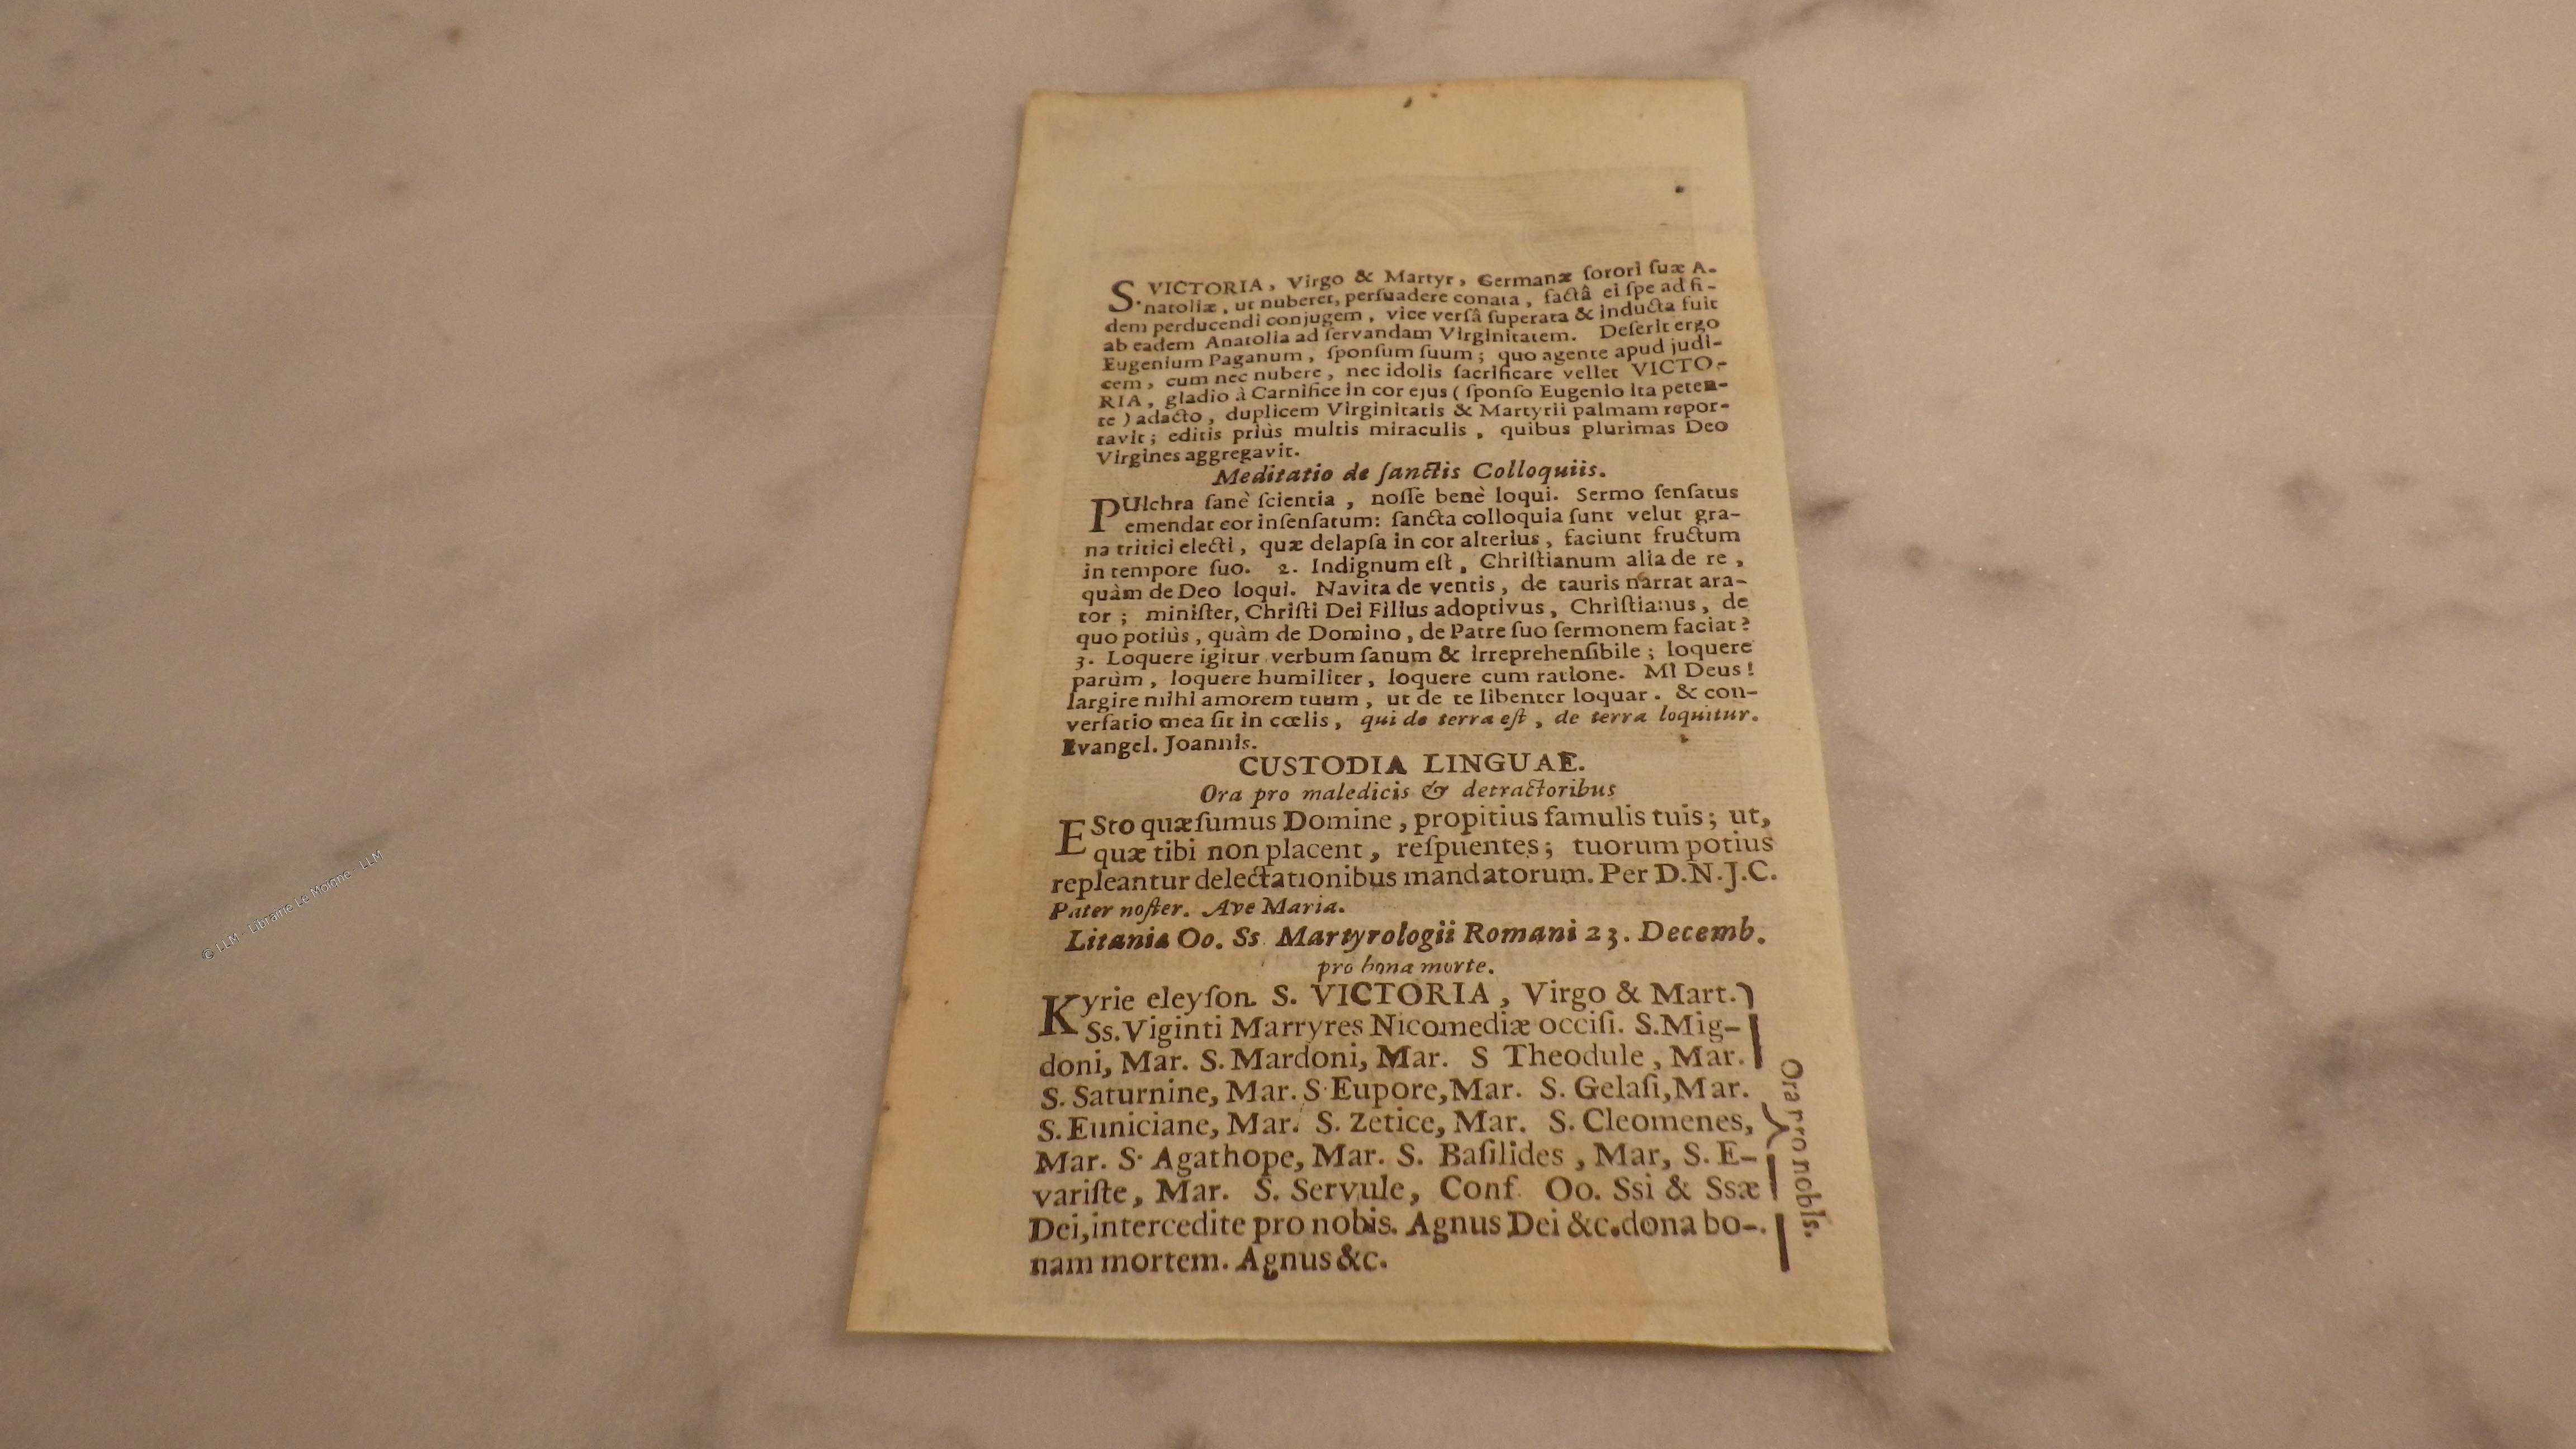 S. VICTORIA, Virgo & Martyr, Germanæ ſorori ſuæ A-
natoliæ, ut nuberet, perſuadere conata, factâ ei ſpe ad fi-
dem perducendi conjugem, vice verſâ ſuperata & inducta fuit
ab eadem Anatolia ad ſervandam Virginitatem. Deſerit ergo
Eugenium Paganum, ſponſum ſuum; quo agente apud judi-
cem, cum nec nubere, nec idolis ſacrificare vellet VICTO-
RIA, gladio à Carnifice in cor ejus (ſponſo Eugenio ita peten-
te) adacto, duplicem Virginitatis & Martyrii palmam repor-
tavit; editis priùs multis miraculis, quibus plurimas Deo
Virgines aggregavit.
Meditatio de ſanctis Colloquiis.
PUlchra ſanè ſcientia, noſſe benè loqui. Sermo ſenſatus
emendat cor inſenſatum: ſancta colloquia ſunt velut gra-
na tritici electi, quæ delapſa in cor alterius, faciunt fructum
in tempore ſuo. 2. Indignum eſt, Chriſtianum alia de re,
quàm de Deo loqui. Navita de ventis, de tauris narrat ara-
tor; miniſter, Chriſti Dei Filius adoptivus, Chriſtianus, de
quo potiùs, quàm de Domino, de Patre ſuo ſermonem faciat?
3. Loquere igitur verbum ſanum & irreprehenſibile; loquere
parùm, loquere humiliter, loquere cum ratione. Mi Deus!
largire mihi amorem tuum, ut de te libenter loquar. & con-
verſatio mea ſit in cœlis, qui de terra eſt, de terra loquitur.
Evangel. Joannis.
CUSTODIA LINGUAE.
Ora pro maledicis & detractoribus
ESto quæſumus Domine, propitius famulis tuis; ut,
quæ tibi non placent, reſpuentes; tuorum potius
repleantur delectationibus mandatorum. Per D.N.J.C.
Pater noſter. Ave Maria.
Litania Oo. Ss Martyrologii Romani 23. Decemb.
pro bona morte.
Kyrie eleyſon. S. VICTORIA, Virgo & Mart.
Ss. Viginti Marryres Nicomediæ occiſi. S. Mig-
doni, Mar. S. Mardoni, Mar. S Theodule, Mar.
S. Saturnine, Mar. S. Eupore, Mar. S. Gelaſi, Mar.
S. Euniciane, Mar. S. Zetice, Mar. S. Cleomenes,
Mar. S. Agathope, Mar. S. Baſilides, Mar, S. E-
variſte, Mar. S. Servule, Conf. Oo. Ssi & Ssæ
Dei, intercedite pro nobis. Agnus Dei &c. dona bo-
nam mortem. Agnus &c.
Ora pro nobis.
© LLM - Librairie Le Moigne - LLM